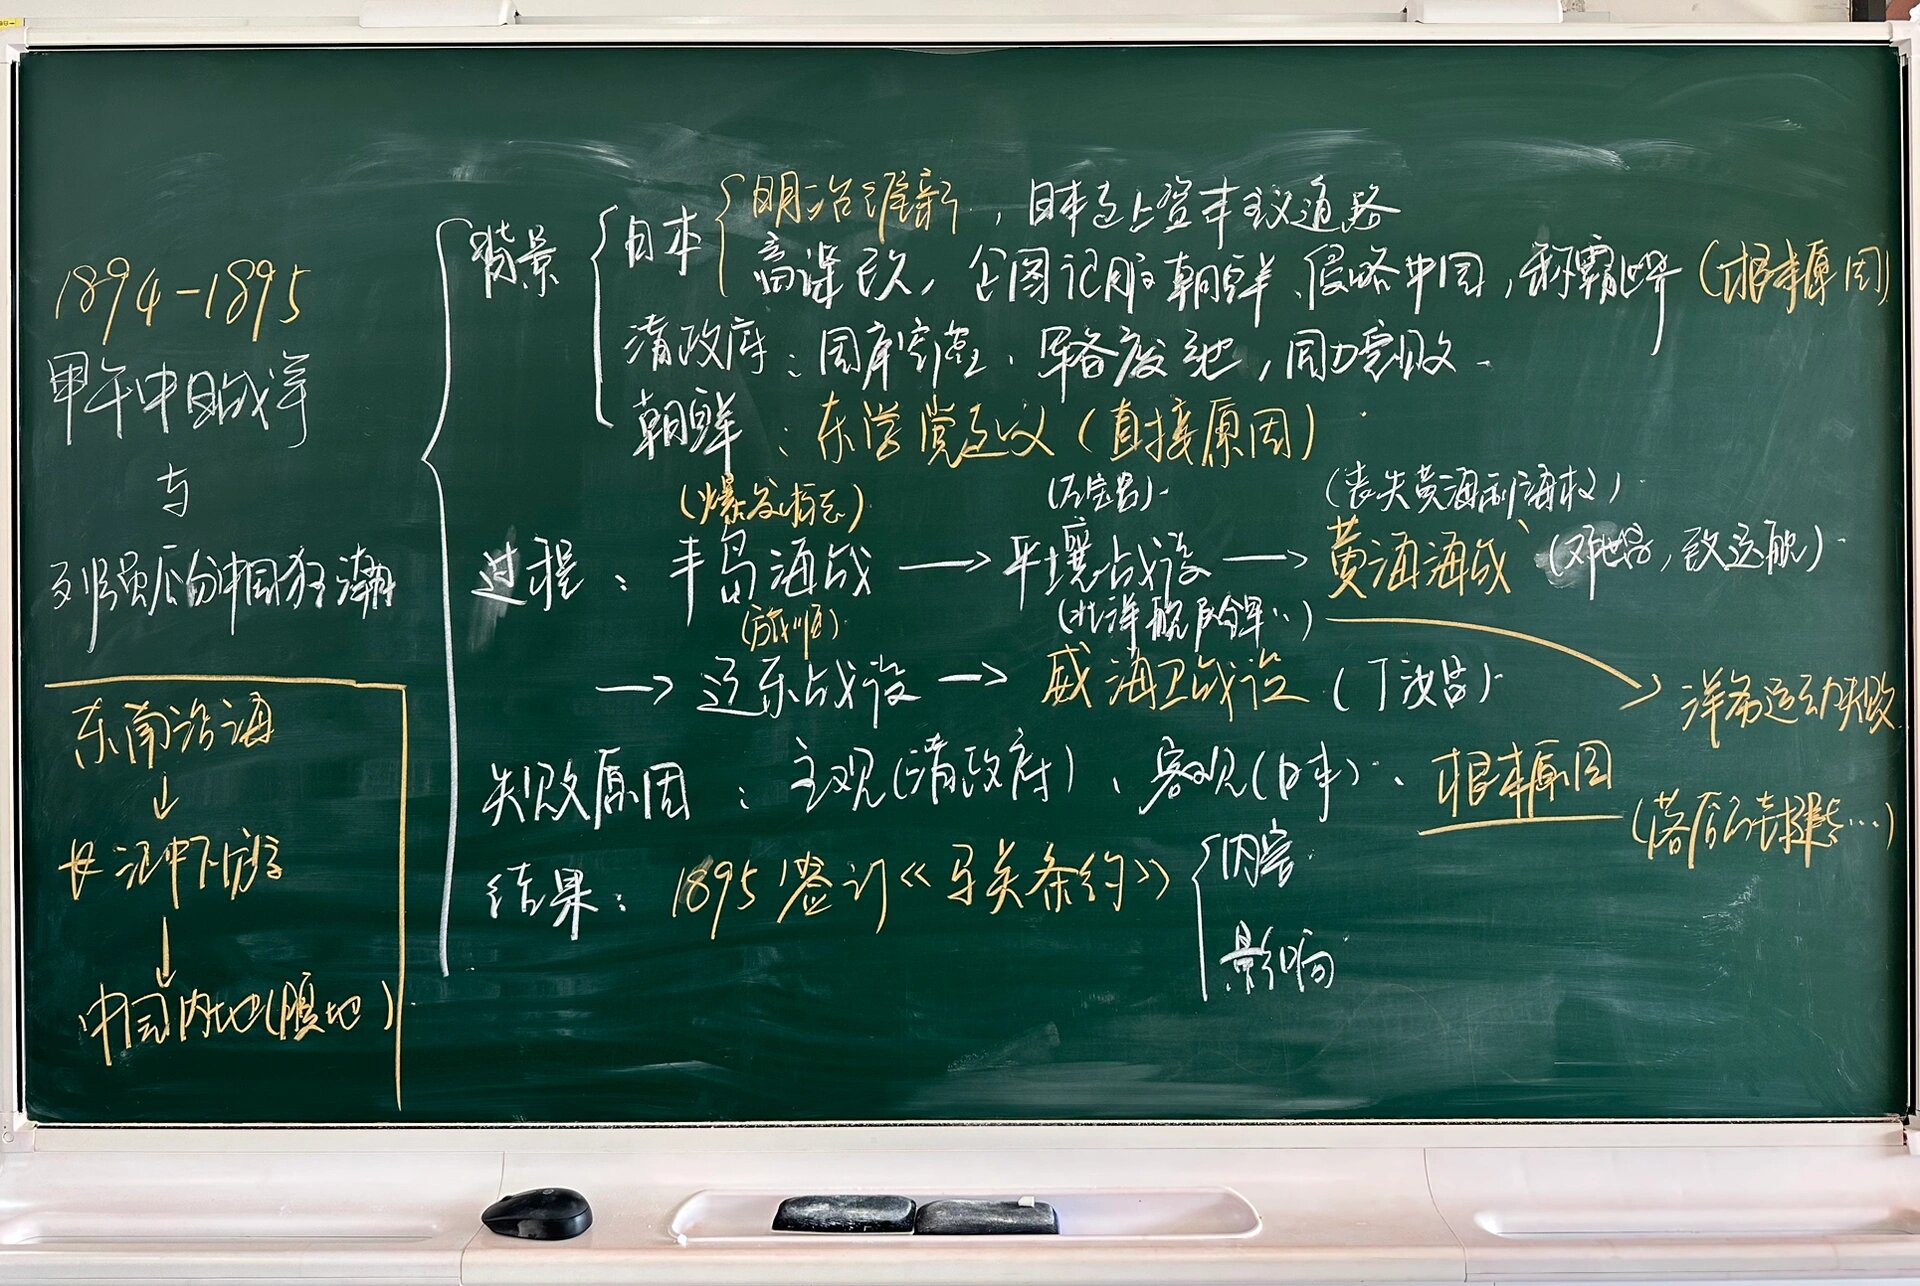 1894-1895
甲午中日战争
与
列强瓜分中国狂潮
东南沿海
↓
长江中下游
↓
中国内地(腹地)
背景
日本
明治维新，日本走上资本主义道路
高速改，企图征服朝鲜、侵略中国，称霸世界(根本原因)
清政府：国库空虚、军备废弛，国力衰败.
朝鲜：东学党起义(直接原因)
(爆发标志) (左宝贵). (丧失黄海制海权).
过程：丰岛海战→平壤战役→黄海海战(邓世昌，致远舰).
(旅顺). (北洋舰队全军…)
→辽东战役→威海卫战役(丁汝昌).
→洋务运动失败
失败原因：主观(清政府)、客观(日本)、根本原因
(落后的封建…)
结果：1895签订《马关条约》
内容
影响